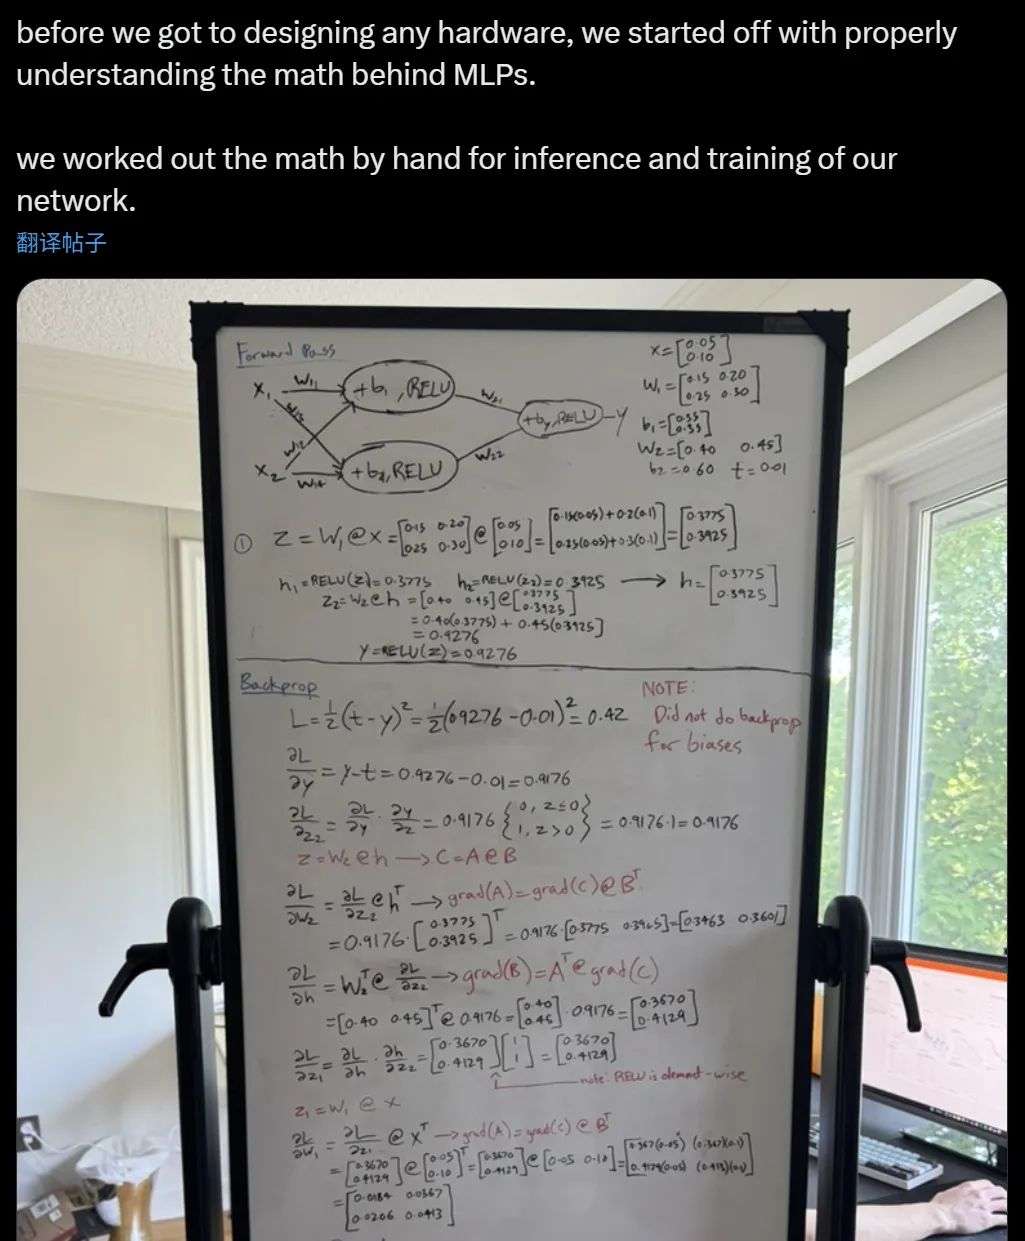 before we got to designing any hardware, we started off with properly
understanding the math behind MLPs.
we worked out the math by hand for inference and training of our
network.
翻译帖子
Forward Pass
x₁ W₁₁ +b₁, RELU W₂₁
x₂ W₁₂ +b₂, RELU W₂₂
W₁₄
+by, RELU — y
x = [0.05 0.10]
W₁ = [0.15 0.20
0.25 0.30]
b₁ = [0.35 0.35]
W₂ = [0.40 0.45]
b₂ = 0.60 t = 0.01
① Z = W₁ @ x = [0.15 0.20 0.25 0.30] @ [0.05 0.10] = [0.15(0.05) + 0.2(0.1) 0.25(0.05) + 0.3(0.1)] = [0.3775 0.3925]
h₁ = RELU(Z) = 0.3775 h₂ = RELU(Z₂) = 0.3925 → h = [0.3775 0.3925]
Z₂ = W₂ @ h = [0.40 0.45] @ [0.3775 0.3925]
= 0.40(0.3775) + 0.45(0.3925)]
= 0.9276
Y = RELU(Z) = 0.9276
Backprop
NOTE:
Did not do backprop
for biases
L = ½(t - y)² = ½(0.9276 - 0.01)² = 0.42
∂L/∂y = y - t = 0.9276 - 0.01 = 0.9176
∂L/∂Z₂ = ∂L/∂y · ∂y/∂z = 0.9176 {0, z ≤ 0 1, z > 0} = 0.9176·1 = 0.9176
Z = W₂ @ h → C = A @ B
∂L/∂W₂ = ∂L/∂Z₂ @ hᵀ → grad(A) = grad(C) @ Bᵀ
= 0.9176 · [0.3775 0.3925]ᵀ = 0.9176 · [0.3775 0.3925] = [0.3463 0.3601]
∂L/∂h = W₂ᵀ @ ∂L/∂Z₂ → grad(B) = Aᵀ @ grad(C)
= [0.40 0.45]ᵀ @ 0.9176 = [0.40 0.45] · 0.9176 = [0.3670 0.4129]
∂L/∂Z₁ = ∂L/∂h · ∂h/∂Z₂ = [0.3670 0.4129] [1 1] = [0.3670 0.4129]
note: RELU is element-wise
Z₁ = W₁ @ x
∂L/∂W₁ = ∂L/∂Z₁ @ xᵀ → grad(A) = grad(C) @ Bᵀ
= [0.3670 0.4129] @ [0.05 0.10]ᵀ = [0.3670 0.4129] @ [0.05 0.10] = [0.367(0.05) (0.367)(0.1) 0.4129(0.05) (0.413)(0.1)]
= [0.0184 0.0367
0.0206 0.0413]